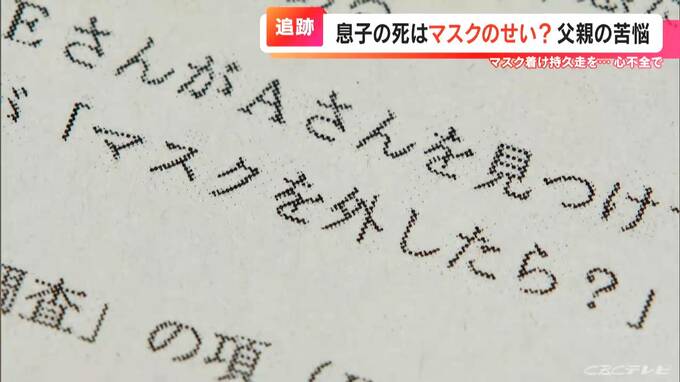 追跡
息子の死はマスクのせい？父親の苦悩
マスク着け持久走を…心不全で
EさんがAさんを見つけ
「マスクを外したら？」
査」の項
CBCテレビ